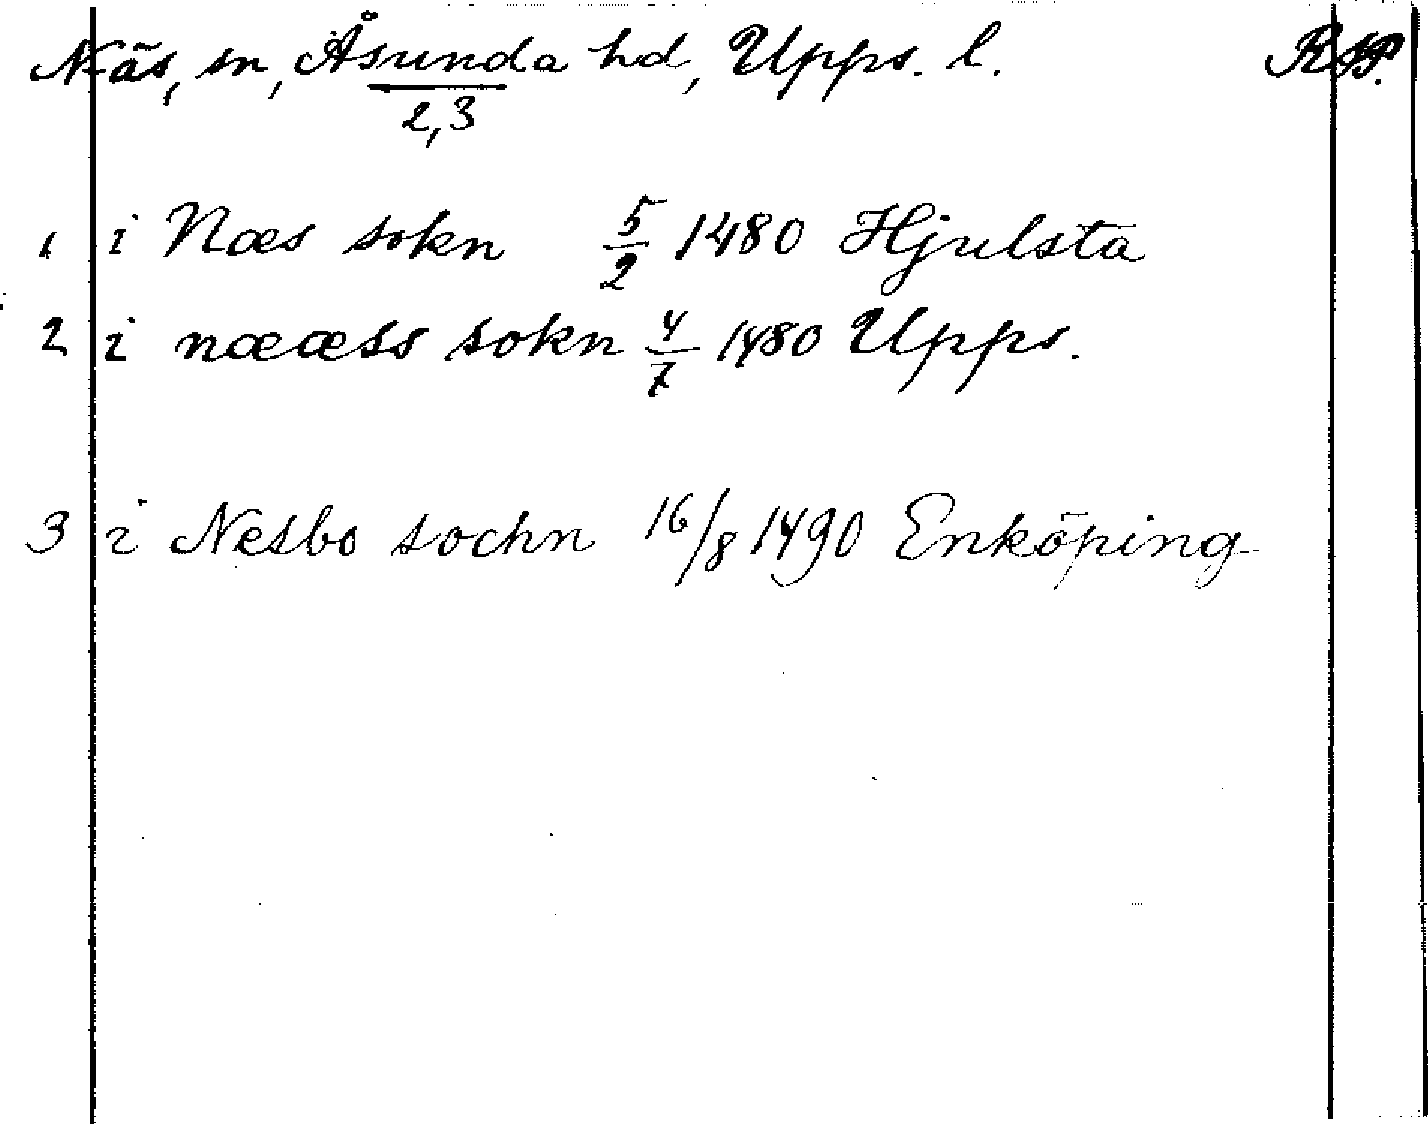 Näs, sn, Åsunda hd, Upps. l.
2,3
1 i Næs sokn 5/2 1480 Hjulsta
2 i nææss sokn 4/7 1480 Upps.
3 i Nesbo sochn 16/8 1490 Enköping